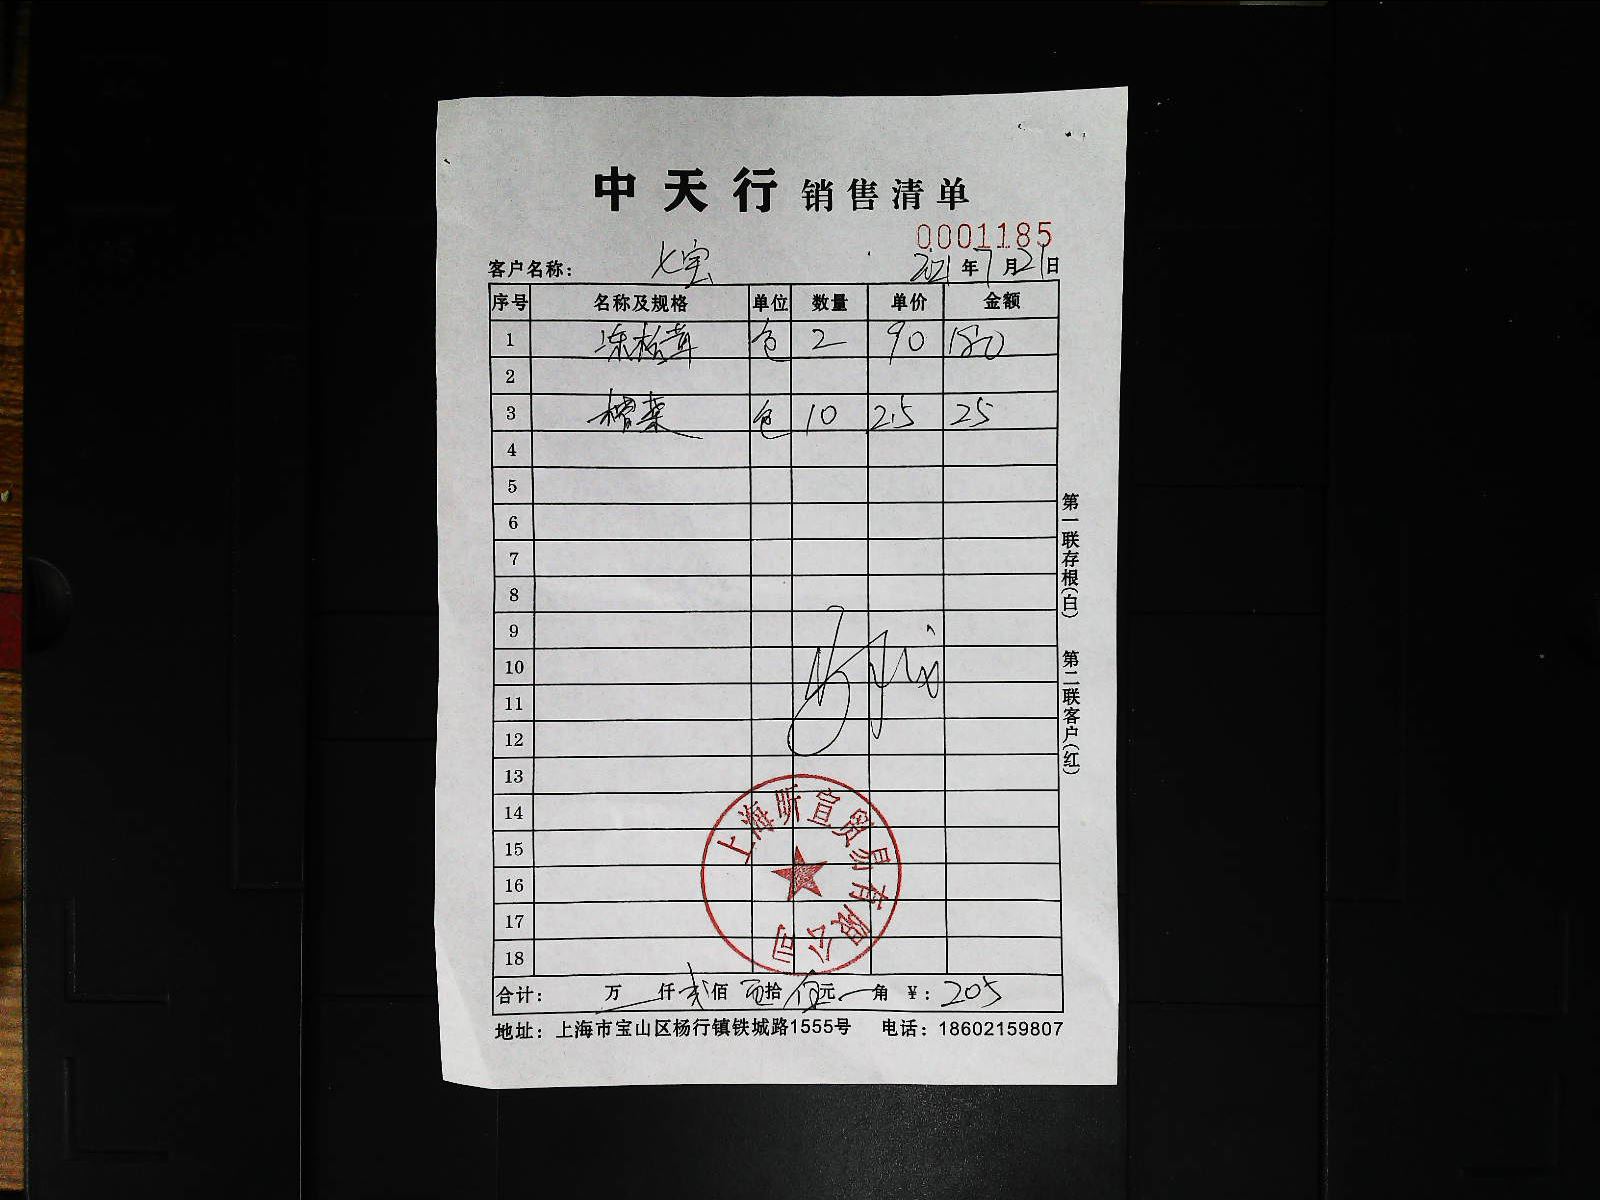 中天行销售清单
0001185
客户名称： 七宝 2021年7月21日
序号 名称及规格 单位 数量 单价 金额
1 冻松茸 包 2 90 180
2
3 榨菜 包 10 2.5 25
4
5
6
7
8
9
10
11
12
13
14
15
16
17
18
合计： 万 仟 贰佰 零拾 伍元 角 ￥：205
地址：上海市宝山区杨行镇铁城路1555号 电话：18602159807
第一联存根(白) 第二联客户(红)
上海昕宣贸易有限公司